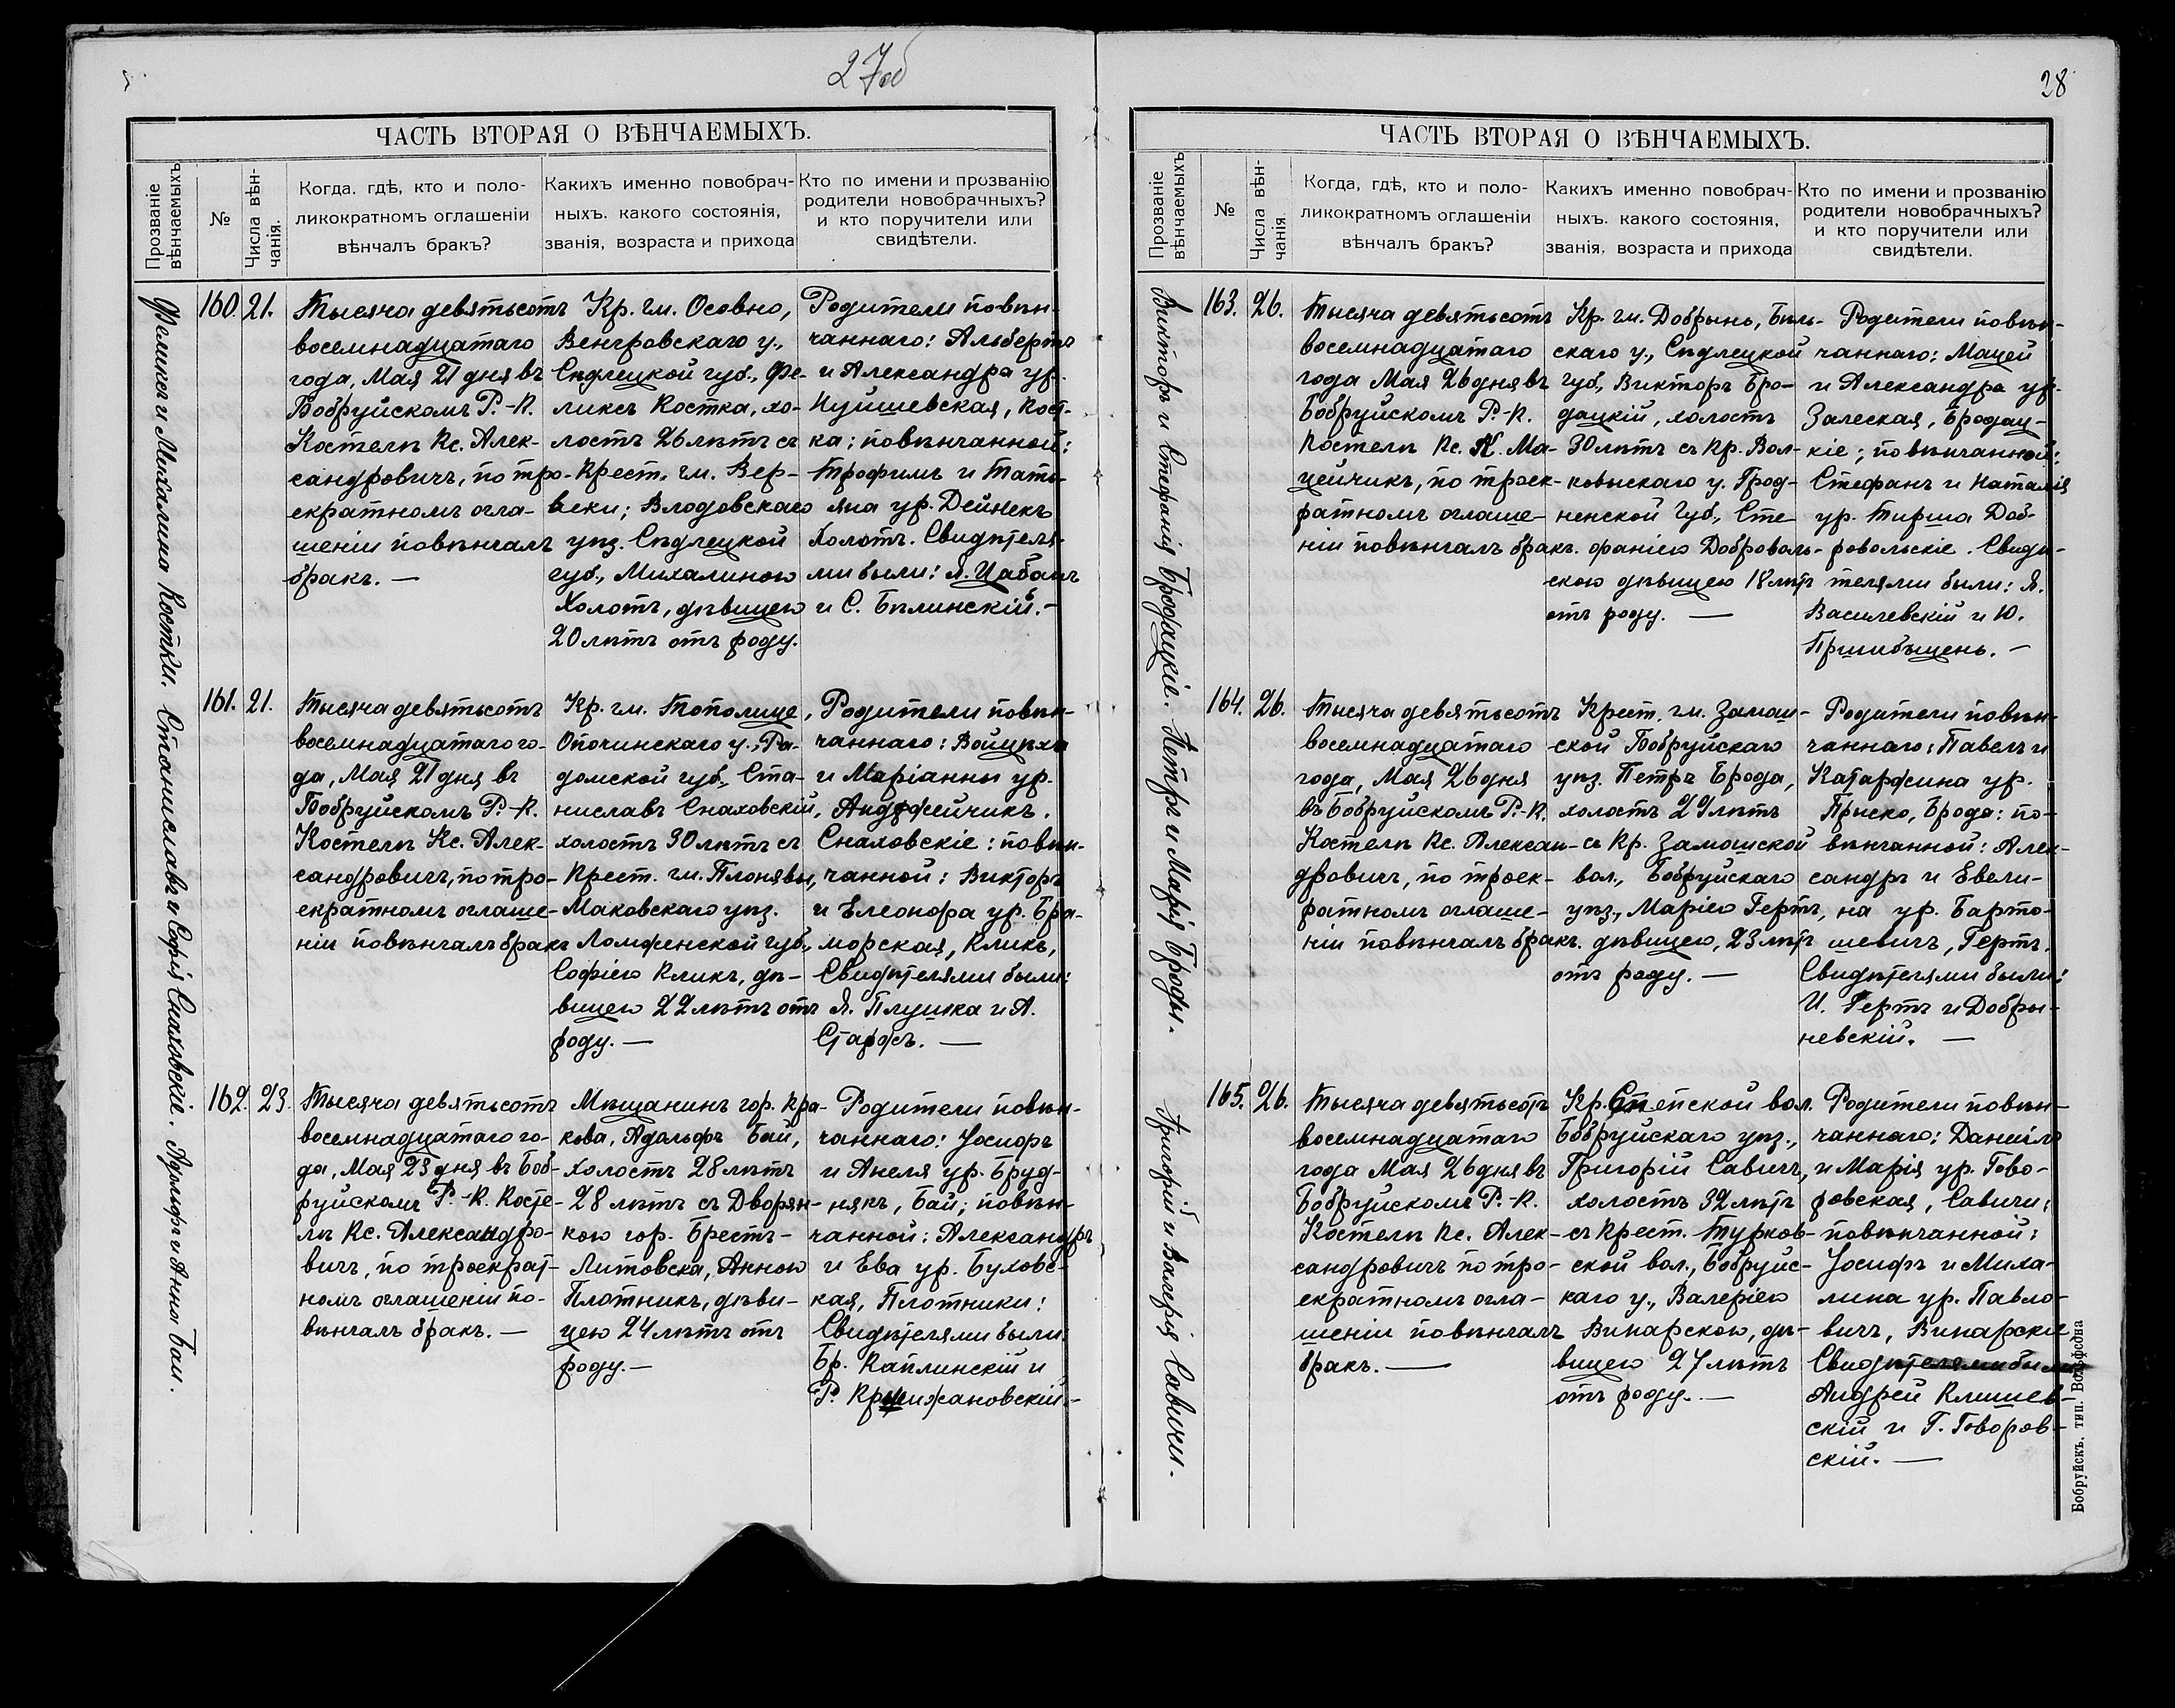 27об
ЧАСТЬ ВТОРАЯ О ВѢНЧАЕМЫХЪ.
Прозваніе вѣнчаемыхъ
№
Числа вѣнчанія.
Когда, гдѣ, кто и поло-
ликократномъ оглашеніи
вѣнчалъ бракъ?
Какихъ именно повобрач-
ныхъ. какого состоянія,
званія, возраста и прихода
Кто по имени и прозванію
родители новобрачныхъ?
и кто поручители или
свидѣтели.
Феликсъ и Михалина Костки.
160. 21.
Тысяча девятьсотъ
восемнадцатаго
года, Мая 21 дня въ
Бобруйскомъ Р.-К.
Костелѣ Кс. Алек-
сандровичъ, по тро-
екратномъ огла-
шеніи повѣнчалъ
бракъ. —
Кр. гм. Осовно,
Венгровскаго у.,
Сѣдлецкой губ., Фе-
ликсъ Костка, хо-
лостъ 26 лѣтъ съ
Крест. гм. Вер-
Влодовскаго
уѣз. Сѣдлецкой
губ., Михалиною
Холотъ, дѣвицею
20 лѣтъ отъ роду.
Родители повѣн-
чаннаго: Альбертъ
и Александра ур.
Кост-
ка; повѣнчанной:
Трофимъ и Тать-
яна ур. Дейнекъ
Холотъ. Свидѣтеля-
ми были: Я. Цабанъ
и С. Бѣлинскій. —
Станиславъ и Софія Снаховскіе.
161. 21.
Тысяча девятьсотъ
восемнадцатаго го-
да, Мая 21 дня въ
Бобруйскомъ Р.-К.
Костелѣ Кс. Алек-
сандровичъ, по тро-
екратномъ оглаше-
ніи повѣнчалъ бракъ
Кр. гм. Тополице,
Опочинскаго у., Ра-
домской губ., Ста-
ниславъ Снаховскій,
холостъ 30 лѣтъ съ
Крест. гм. Плонявы,
Маковскаго уѣз.
Ломженской губ.,
Софіею Кликъ, дѣ-
вицею 22 лѣтъ отъ
роду. —
Родители повѣн-
чаннаго: Войцѣхъ
и Маріанны ур.
Андржейчикъ,
Снаховскіе: повѣн-
чанной: Викторъ
и Елеонора ур. Бра-
морская, Кликъ,
Свидѣтелями были:
Я. Плушка и А.
Старжъ. —
Адольфъ и Анна Баи.
162. 23.
Тысяча девятьсотъ
восемнадцатаго го-
да, Мая 23 дня въ Боб-
руйскомъ Р.-К. Косте-
лѣ Кс. Александро-
вичъ, по троекрат-
номъ оглашеніи по-
вѣнчалъ бракъ. —
Мѣщанинъ гор. Кра-
кова, Адольфъ Бай,
Холостъ 28 лѣтъ
28 лѣтъ съ Дворян-
кою гор. Брестъ-
Литовска, Анною
Плотникъ, дѣви-
цею 24 лѣтъ отъ
роду. —
Родители повѣн-
чаннаго: Іосифъ
и Анеля ур. Бруд-
някъ, Бай; повѣн-
чанной: Александръ
и Ева ур. Буховс-
кая, Плотники:
Свидѣтелями были:
Бр. Каплинскій и
Р. Кршижановскій. —
28
ЧАСТЬ ВТОРАЯ О ВѢНЧАЕМЫХЪ.
Прозваніе вѣнчаемыхъ
№
Числа вѣнчанія.
Когда, гдѣ, кто и поло-
ликократномъ оглашеніи
вѣнчалъ бракъ?
Какихъ именно повобрач-
ныхъ. какого состоянія,
званія, возраста и прихода
Кто по имени и прозванію
родители новобрачныхъ?
и кто поручители или
свидѣтели.
Викторъ и Стефанія Бродацкіе.
163. 26.
Тысяча девятьсотъ
восемнадцатаго
года Мая 26 дня въ
Бобруйскомъ Р.-К.
Костелѣ Кс. К. Ма-
цейчикъ, по троек-
ратномъ оглаше-
ніи повѣнчалъ бракъ.
Кр. гм. Добрынь, Бѣль-
скаго у., Сѣдлецкой
губ., Викторъ Бро-
дацкій, холостъ
30 лѣтъ съ Кр. Вол-
ковыскаго у. Грод-
ненской губ., Сте-
фаніею Доброволь-
скою дѣвицею 18 лѣтъ
отъ роду. —
Родители повѣн-
чаннаго: Мацей
и Александра ур.
Залеская, Бродац-
кіе; повѣнчанной:
Стефанъ и Наталія
ур. Тирша Доб-
ровольскіе. Свидѣ-
телями были: Я.
Василевскій и Ю.
Пршибыщень. —
Петръ и Марія Броды.
164. 26.
Тысяча девятьсотъ
восемнадцатаго
года, Мая 26 дня
въ Бобруйскомъ Р.-К.
Костелѣ Кс. Алексан-
дровичъ, по троек-
ратномъ оглаше-
ніи повѣнчалъ бракъ.
Крест. гм. Замош-
ской Бобруйскаго
уѣз. Петръ Брода,
холостъ 29 лѣтъ
съ Кр. Замошской
вол., Бобруйскаго
уѣз., Маріею Гертъ,
дѣвицею, 23 лѣтъ
отъ роду. —
Родители повѣн-
чаннаго: Павелъ и
Катаржина ур.
Прыско, Брода: по-
вѣнчанной: Алек-
сандръ и Евели-
на ур. Барто-
шевичъ, Гертъ.
Свидѣтелями были:
И. Гертъ и Добры-
невскій. —
Григорій и Валерія Савичи.
165. 26.
Тысяча девятьсотъ
восемнадцатаго
года Мая 26 дня въ
Бобруйскомъ Р.-К.
Костелѣ Кс. Алек-
сандровичъ по тро-
екратномъ огла-
шеніи повѣнчалъ
бракъ. —
Кр. вол.
Бобруйскаго уѣз.,
Григорій Савичъ,
холостъ 32 лѣтъ
съ Крест. Турков-
ской вол., Бобруйс-
каго у., Валеріею
Винарскою, дѣ-
вицею 27 лѣтъ
отъ роду. —
Родители повѣн-
чаннаго: Даниілъ
и Марія ур. Гово-
ровская, Савичи;
повѣнчанной:
Іосифъ и Миха-
лина ур. Павло-
вичъ, Винарскіе
Свидѣтелями были
Андрей Клишев-
скій и Г. Говоров-
скій. —
Бобруйскъ. тип. Вольфсона